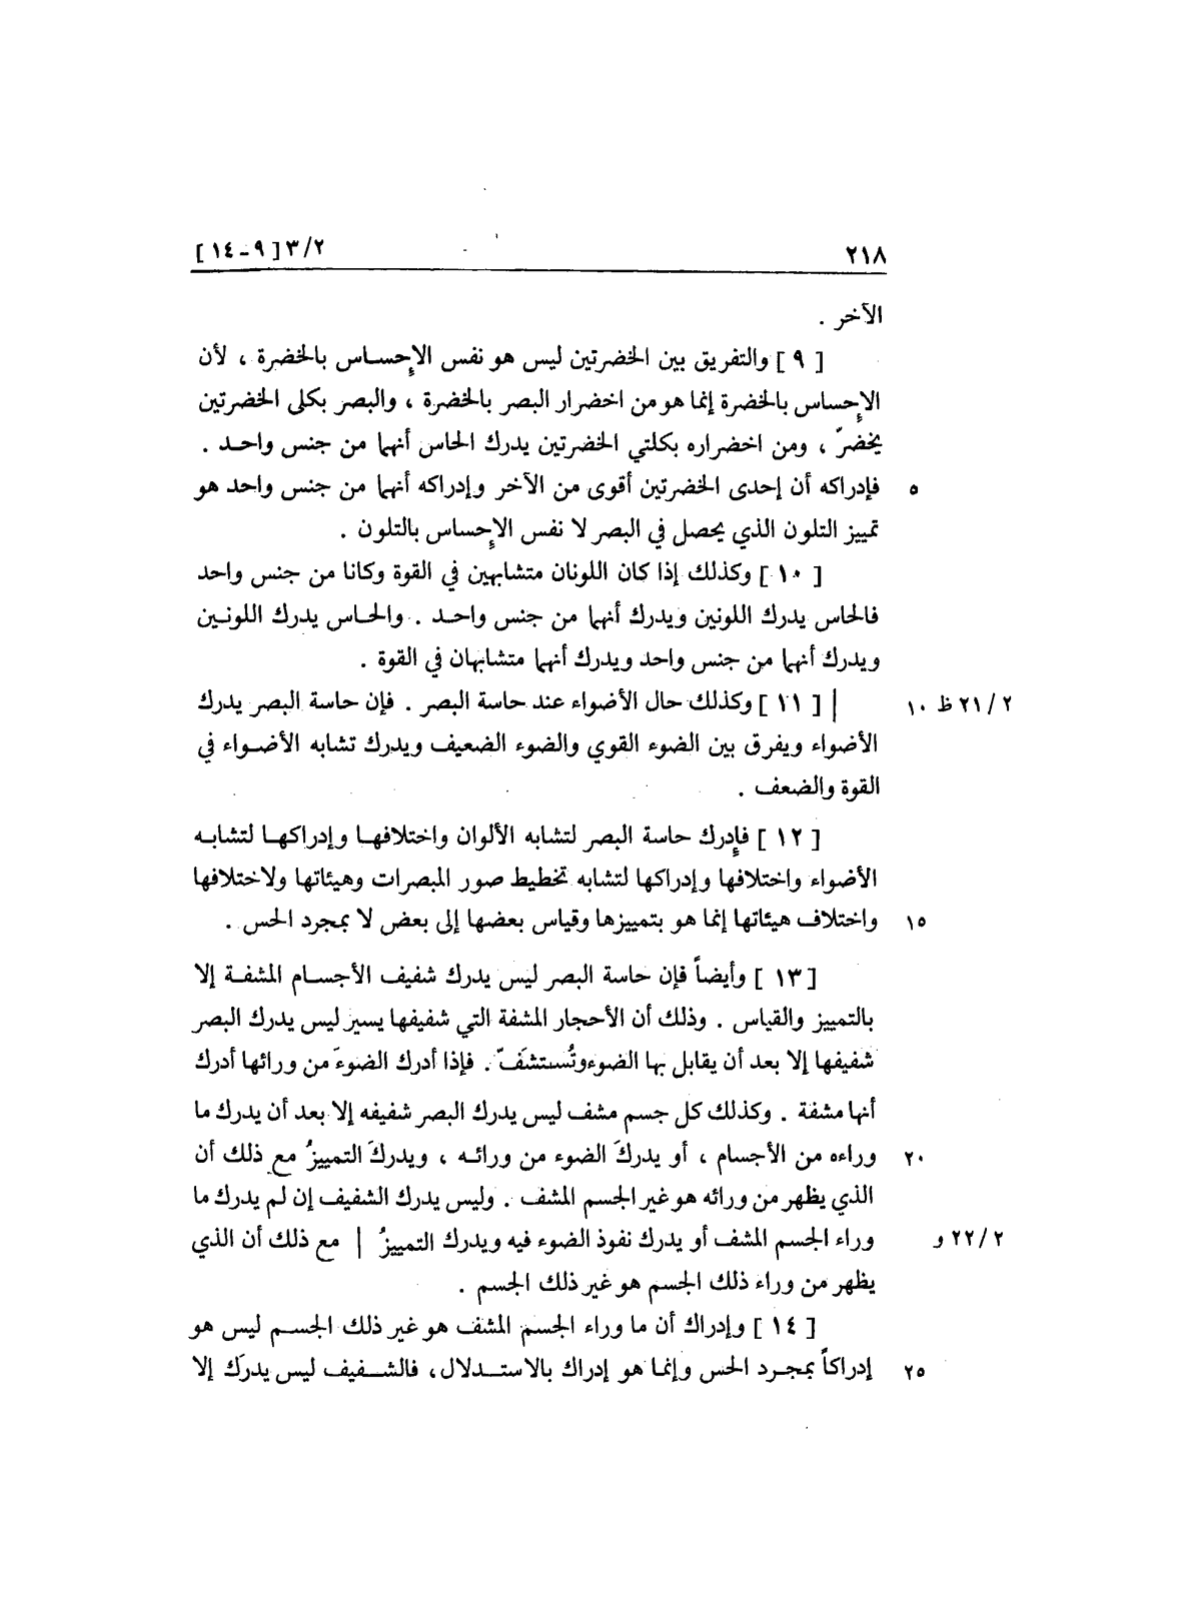 ٢١٨ ٣/٢ [ ٩ - ١٤ ]
الآخر .
[ ٩ ] والتفريق بين الخضرتين ليس هو نفس الإحساس بالخضرة ، لأن
الإحساس بالخضرة إنما هو من اخضرار البصر بالخضرة ، والبصر بكلى الخضرتين
يخضرّ ، ومن اخضراره بكلتي الخضرتين يدرك الحاس أنهما من جنس واحد .
٥ فإدراكه أن إحدى الخضرتين أقوى من الآخر وإدراكه أنهما من جنس واحد هو
تمييز التلون الذي يحصل في البصر لا نفس الإحساس بالتلون .
[ ١٠ ] وكذلك إذا كان اللونان متشابهين في القوة وكانا من جنس واحد
فالحاس يدرك اللونين ويدرك أنهما من جنس واحد . والحاس يدرك اللونين
ويدرك أنهما من جنس واحد ويدرك أنهما متشابهان في القوة .
٢١/٢ ظ ١٠ | [ ١١ ] وكذلك حال الأضواء عند حاسة البصر . فإن حاسة البصر يدرك
الأضواء ويفرق بين الضوء القوي والضوء الضعيف ويدرك تشابه الأضواء في
القوة والضعف .
[ ١٢ ] فإدرك حاسة البصر لتشابه الألوان واختلافها وإدراكها لتشابه
الأضواء واختلافها وإدراكها لتشابه تخطيط صور المبصرات وهيئاتها ولاختلافها
١٥ واختلاف هيئاتها إنما هو بتمييزها وقياس بعضها إلى بعض لا بمجرد الحس .
[ ١٣ ] وأيضاً فإن حاسة البصر ليس يدرك شفيف الأجسام المشفة إلا
بالتمييز والقياس . وذلك أن الأحجار المشفة التي شفيفها يسير ليس يدرك البصر
شفيفها إلا بعد أن يقابل بها الضوء وتُستشَفّ . فإذا أدرك الضوءَ من ورائها أدرك
أنها مشفة . وكذلك كل جسم مشف ليس يدرك البصر شفيفه إلا بعد أن يدرك ما
٢٠ وراءه من الأجسام ، أو يدركَ الضوء من ورائه ، ويدركَ التمييزُ مع ذلك أن
الذي يظهر من ورائه هو غير الجسم المشف . وليس يدرك الشفيف إن لم يدرك ما
٢٢/٢ و وراء الجسم المشف أو يدرك نفوذ الضوء فيه ويدرك التمييزُ | مع ذلك أن الذي
يظهر من وراء ذلك الجسم هو غير ذلك الجسم .
[ ١٤ ] وإدراك أن ما وراء الجسم المشف هو غير ذلك الجسم ليس هو
٢٥ إدراكاً بمجرد الحس وإنما هو إدراك بالاستدلال ، فالشفيف ليس يدرَك إلا